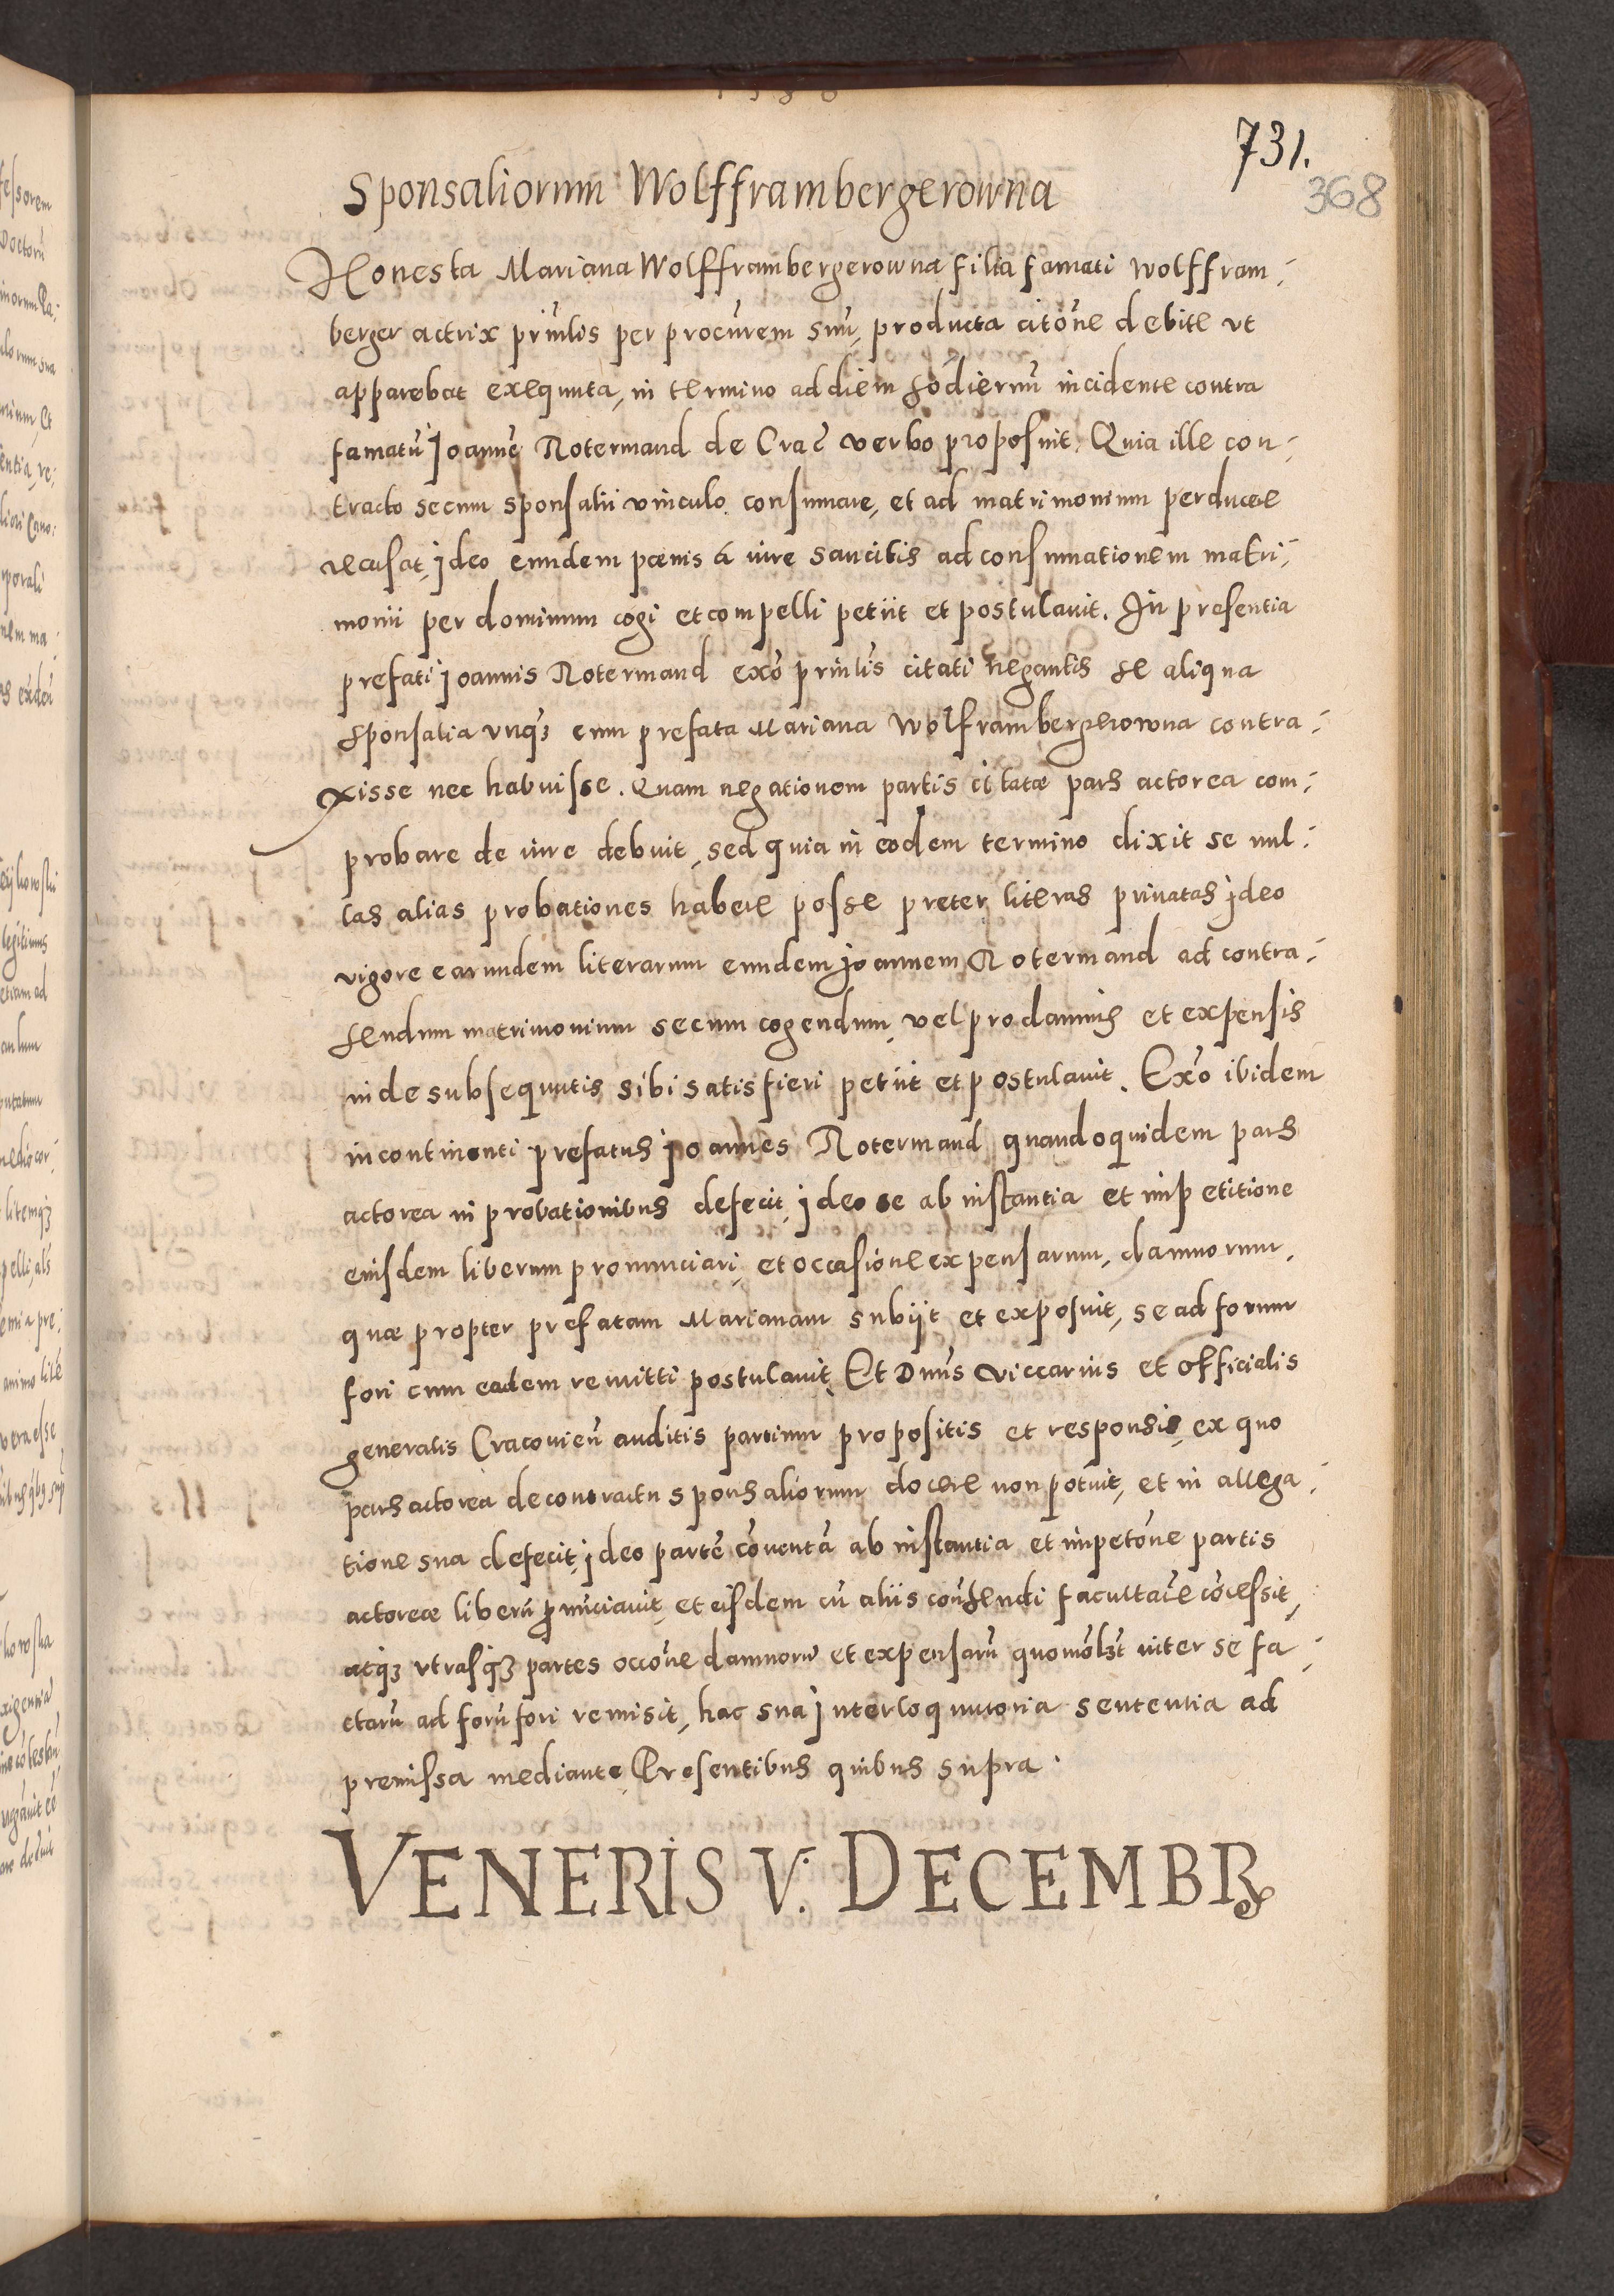 731.
368
Sponsaliorum Wolfframbergerowna
Honesta Mariana Wolfframbergerowna filia famati Wolffram-
berger actrix prīnlis per procurem suū, producta citōne debite vt
apparebat exequuta, in termino ad diem hodiernū incidente contra
famatū Joannē Notermand de Crac̄ verbo proposuit. Quia ille con-
tracto secum sponsalii vinculo consumare, et ad matrimonium perducere
recusat, ideo eundem pœnis à iure sancitis ad consumationem matri-
monii per dominum cogi et compelli petiit et postulauit. In presentia
prefati Joannis Notermand exō prīnlis citati negantis se aliqua
sponsalia vnqȝ cum prefata Mariana Wolframbergerowna contra-
xisse nec habuisse. Quam negationem partis citatæ pars actorea com-
probare de iure debuit, sed quia in eodem termino dixit se nul-
las alias probationes habere posse preter literas priuatas ideo
vigore earundem literarum eundem Joannem Notermand ad contra-
hendum matrimonium secum cogendum, vel pro damnis et expensis
inde subsequutis sibi satisfieri petiit et postulauit. Exō ibidem
incontinenti prefatus Joannes Notermand quandoquidem pars
actorea in probationibus defecit, ideo se ab instantia et impetitione
eiusdem liberum pronunciari, et occasione expensarum, damnorum,
quæ propter prefatam Marianam subijt et exposuit, se ad forum
fori cum eadem remitti postulauit. Et Dnūs Viccarius et Officialis
generalis Cracovieñ auditis partium propositis et responsis, ex quo
pars actorea de contractu sponsaliorum docere non potuit, et in allega-
tione sua defecit, ideo partē cōuentā ab instantia et impetōne partis
actoreæ liberū pnūciauit, et eisdem cū aliis conthendi facultatē cōcessit,
atqȝ vtrasqȝ partes occōne damnorū et expensarū quomōlȝt inter se fa-
ctarū ad forū fori remisit, hac sua interloquutoria sententia ad
premissa mediante Presentibus quibus supra.
VENERIS V. DECEMBR